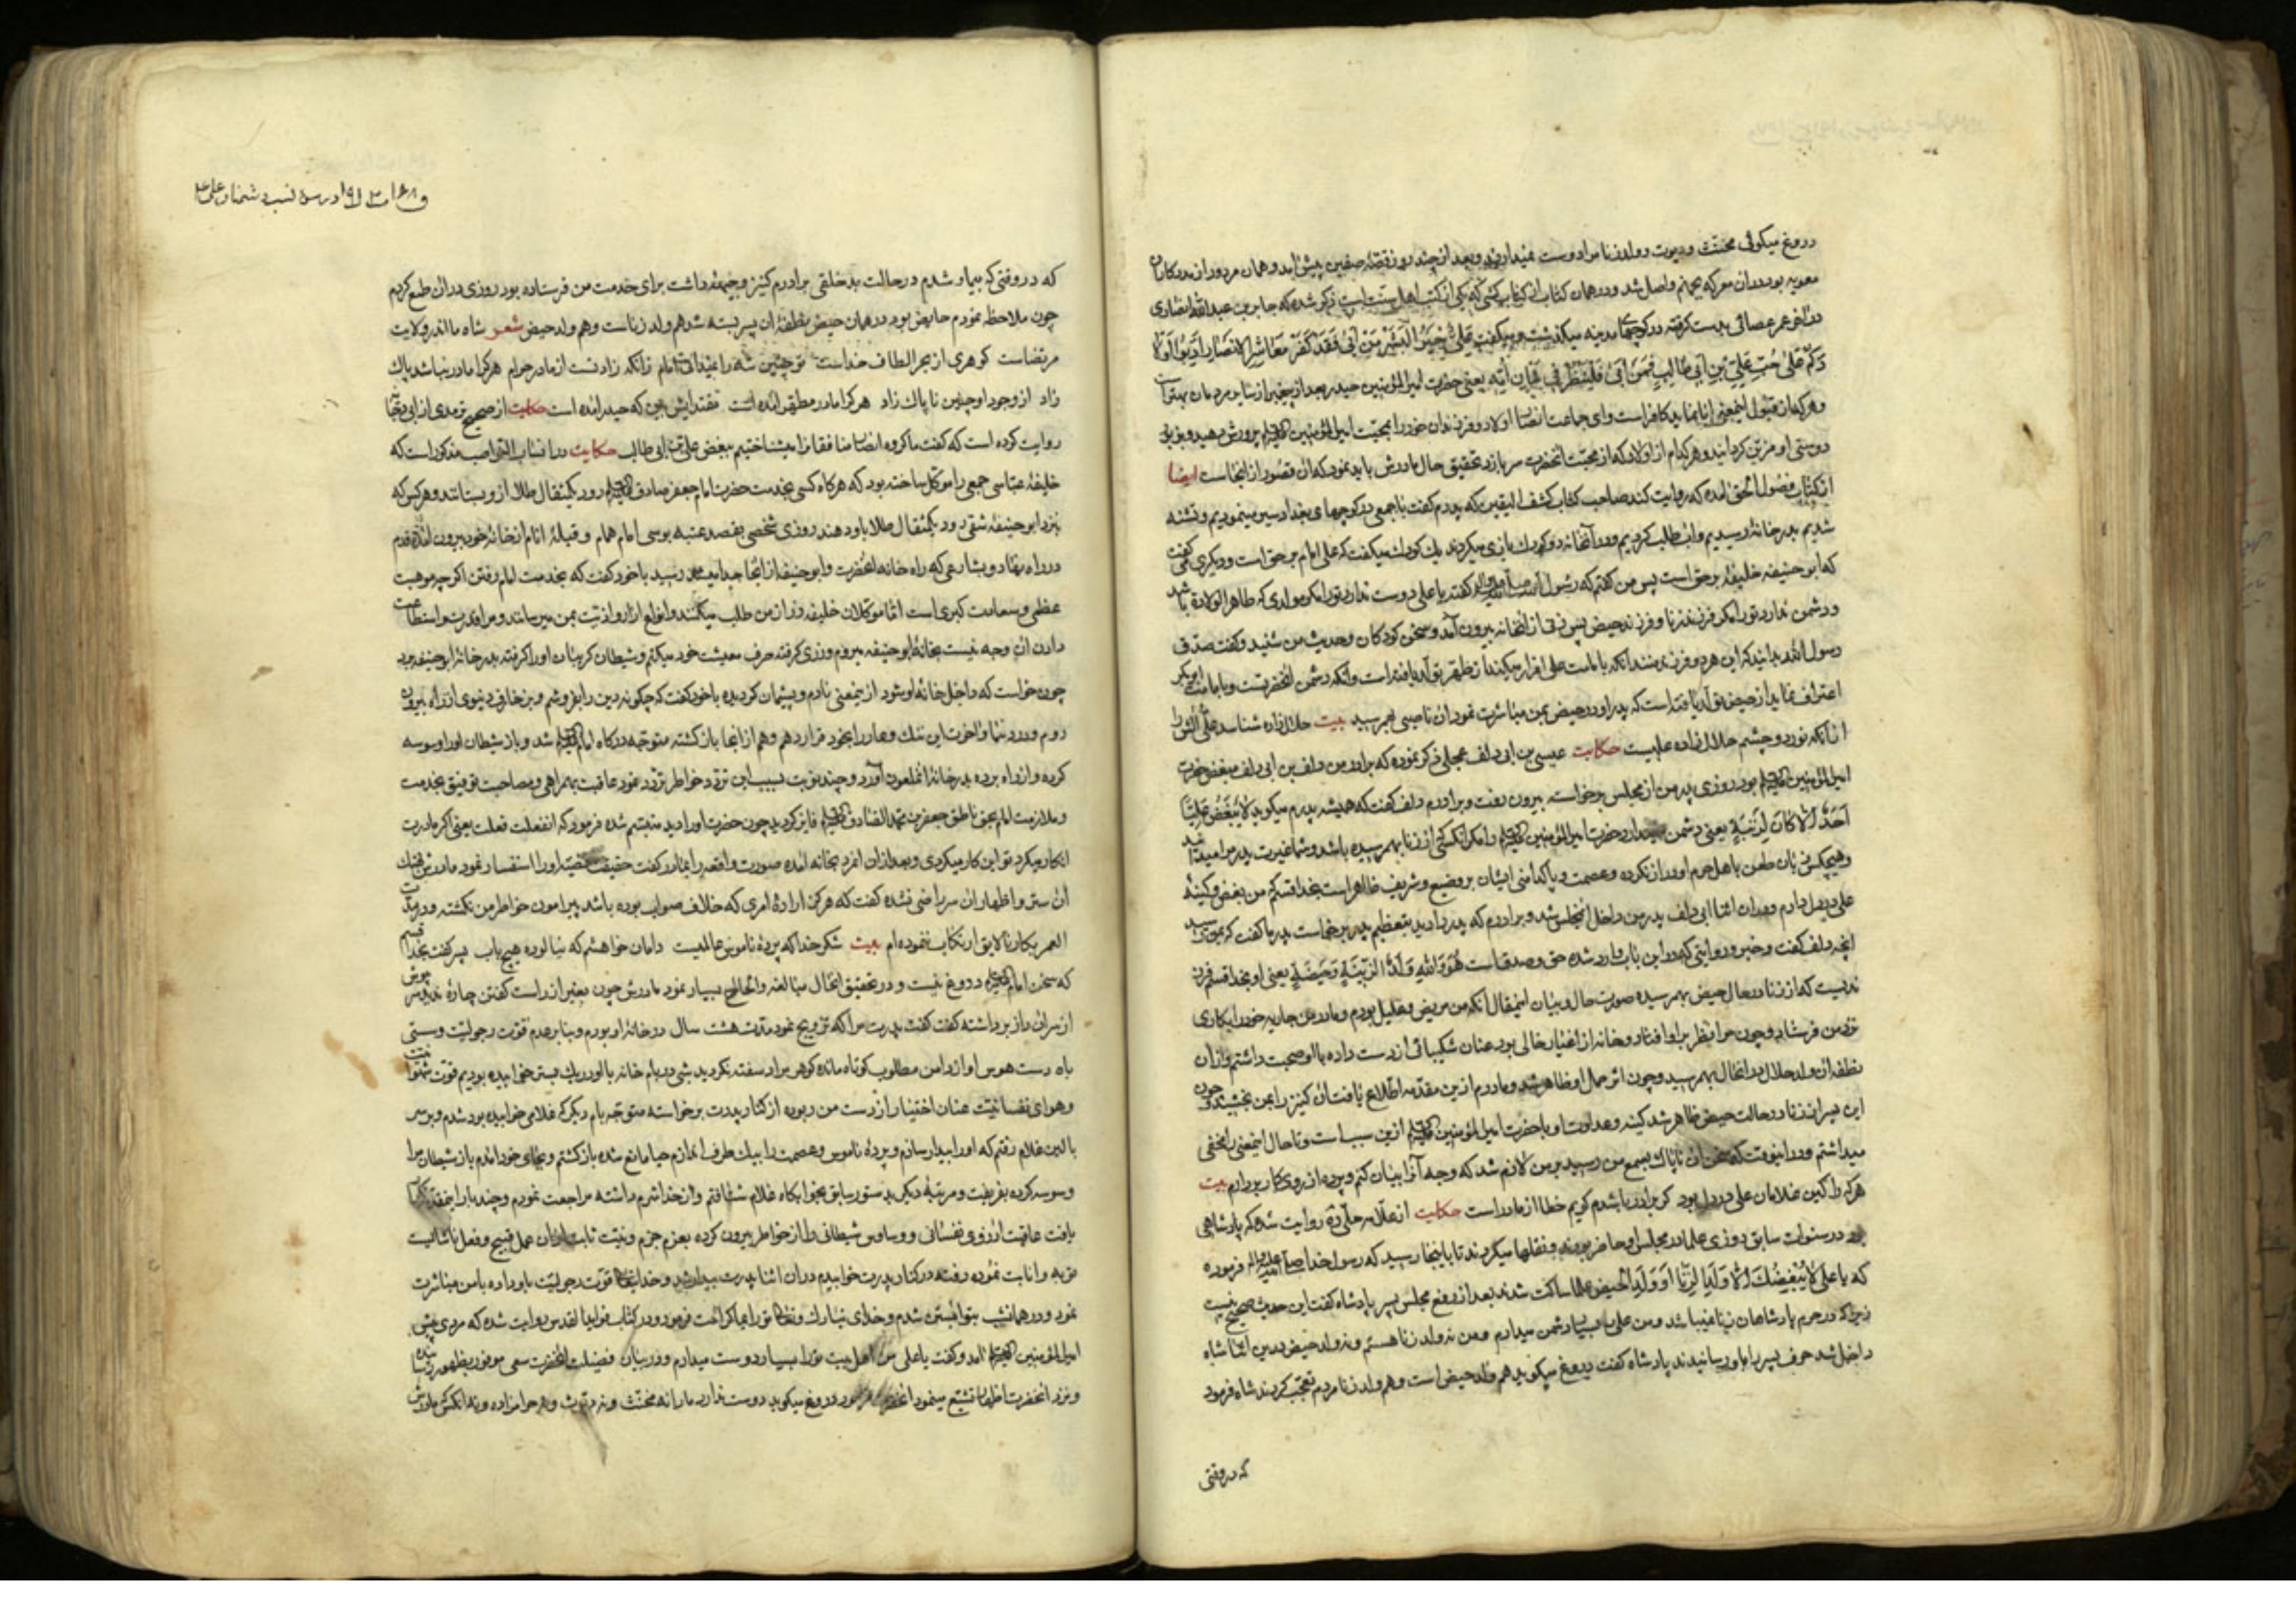 دروغ میکوئی مخنث و دیوث و ولد زنا مرا دوست نمیدارند و بعد از چند روز قصهٔ صفین پیش امد و همان مرد از مددکاران
معویه بود در ان معرکه بجهنم واصل شد و در همان کتاب از کتاب که یکی از کتب اهل سنت است ذکر شده که جابر بن عبدالله انصاری
در اخر عمر عصائی بدست کرفته در کوچهای مدینه میکذشت و میکفت علی خیر البشر من ابی فقد کفر معاشر الانصار ادبوا اولا
دکم علی حب علی بن ابی طالب فمن ابی فلینظر فی شان امه یعنی حضرت امیرالمؤمنین حیدر بعد از پیغمبر از سایر مردمان بهتر است
و هرکه از قبول اینمعنی ابا نماید کافر است و ای جماعت انصار اولاد و فرزندان خود را بمحبت امیرالمؤمنین پرورش دهید و بزیور
دوستی او مزین کردانید و هر کدام از اولاد که از محبت انحضرت سر باز زد تحقیق حال مادرش باید نمود که ان قصور از انجاست ایضا
از کتاب امده که روایت کند صاحب کتاب کشف الیقین که پدرم کفت با جمعی در کوچهای بغداد سیر مینمودیم و تشنه
شدیم بدر خانهٔ رسیدیم و اب طلب کردیم و در آنخانه دو کودک بازی میکردند یک کودک میکفت که علی امام بر حق است و دیکری می کفت
که ابو حنیفه خلیفهٔ بر حق است پس من کفتم که رسول کفته یا علی دوست ندارد تو را مکر مولدی که طاهر الولادة باشد
و دشمن ندارد تو را مکر فرزند زنا و فرزند حیض پس زنی از انخانه بیرون آمد و سخن کودکان و حدیث من شنید و کفت صدق
رسول الله بدانید که این هر دو فرزند منند انکه بامامت علی اقرار میکند از طهر تولد یافته است و انکه دشمن انحضرتست و بامامت ابوبکر
اعتراف نماید از حیض تولد یافته است که پدر او در حیض بمن مباشرت نمود ان ناصبی بهم رسید بیت حلال زاده شناسد علی
از انکه نور دو چشم حلال زاده علیست حکایت عیسی بن ابی دلف عجلی ذکر نموده که برادر من دلف بن ابی دلف مبغض حضرت
امیرالمؤمنین بود روزی پدر من از مجلس برخواسته بیرون رفت و برادرم دلف کفت که همیشه پدرم میکوید لا یبغض علیا
احد الا کان لزنیة یعنی دشمن ندارد حضرت امیرالمؤمنین را مکر انکسی که از زنا بهم رسیده باشد و شما غیرت پدر مرا میدانید
و هیچکس زبان طعن باهل حرم او دراز نکرده و عصمت و پاکدامنی ایشان بر وضیع و شریف ظاهر است بخدا قسم که من بغض و کینهٔ
علی در دل دارم در ان اثنا ابی دلف پدر من داخل انمجلس شد و برادرم که پدر را دید بتعظیم پدر برخاست پدر ما کفت که
انچه دلف کفت و خبر و روایتی که در این باب وارد شده حق و صدقست هو والله ولد الزنیة و حیضة یعنی او بخدا قسم فرزندیست
که از زنا در حال حیض بهم رسیده صورت حال و بیان اینمقال انکه من مریض و علیل بودم و مادر من جاریه خود را بکاری
نزد من فرستاد و چون مرا نظر بر او افتاد و خانه از اغیار خالی بود عنان شکیبائی از دست داده با او صحبت داشتم و از ان
نطفه ان ولد حلال در انحال بهم رسید و چون اثر حمل او ظاهر شد و مادرم ازین مقدمه اطلاع یافت ان کنیز را بمن بخشید و چون
این پسر از زنا در حالت حیض ظاهر شد کینه و عداوت او با حضرت امیرالمؤمنین ازین سبب است و تا حال اینمعنی را مخفی
میداشتم و در اینوقت که سخن ان ناپاک بسمع من رسید بر من لازم شد که وجه آنرا بیان کنم و پرده از روی کار بردارم بیت
هر که را کین غلامان علی در دل بود کر برادر باشدم کویم خطا از مادر است حکایت از علامهٔ حلی روایت شده که پادشاهی
بود در سنوات سابق روزی علما در مجلس او حاضر بودند و نقلها میکردند تا باینجا رسید که رسول خدا فرموده
که یا علی لا یبغضک الا ولد الزنا او ولد الحیض علما ساکت شدند بعد از رفع مجلس پسر پادشاه کفت این حدیث صحیح نیست
زیرا که در حرم پادشاهان زنا نمیباشد و من علی را بسیار دشمن میدارم و من نه ولد زنا هستم و نه ولد حیض درین اثنا شاه
داخل شد حرف پسر را باو رسانیدند پادشاه کفت دروغ میکوید هم ولد حیض است و هم ولد زنا مردم تعجب کردند شاه فرمود
که در وقتی
که در وقتی که بیمار شدم در حالت بدخلقی برادرم کنیز وجیههٔ داشت برای خدمت من فرستاده بود روزی در ان طمع کردم
چون ملاحظه نمودم حایض بود در همان حیض نطفهٔ ان پسر بسته شد هم ولد زناست و هم ولد حیض شعر شاه ما اندر ولایت
مرتضاست کوهری از بحر الطاف خداست تو چنین شه را نمیدانی امام زانکه زادنت از مادر حرام هر کرا مادر نباشد پاک
زاد از وجود او چنین ناپاک زاد هر کرا مادر مطهر امده است مقتدایش بین که حیدر امده است حکایت از صحیح ترمدی از ابی
روایت کرده است که کفت ما کروه انصار منافقانرا میشناختیم ببغض علی بن ابی طالب حکایت در انساب النواصب مذکور است که
خلیفهٔ عباسی جمعی را موکل ساخته بود که هر کاه کسی بخدمت حضرت امام جعفر صادق رود یکمثقال طلا از او بستانند و هر کس که
بنزد ابو حنیفهٔ شقی رود یکمثقال طلا باو دهند روزی شخصی بقصد عتبه بوسی امام همام و قبلهٔ انام از خانهٔ خود بیرون امده قدم
در راه نهاد و بشارعی که راه خانه انحضرت و ابو حنیفه از انجا جدا میشد رسید با خود کفت که بخدمت امام رفتن اکر چه موهبت
عظمی و سعادت کبری است اما موکلان خلیفه زر از من طلب میکنند و انواع ازار و اذیت بمن میرسانند و مرا قدرت و استطاعت
دادن ان وجه نیست بخانهٔ ابو حنیفه میروم و زری کرفته صرف معیشت خود میکنم و شیطان کریبان او را کرفته بدر خانهٔ ابو حنیفه برد
چون خواست که داخل خانهٔ او شود از ینمعنی نادم و پشیمان کردیده با خود کفت که چکونه دین را بفروشم و بزخارف دنیوی از راه بیرون
روم و در دنیا و اخرت این ننک و عار را بخود قرار دهم و هم از انجا باز کشته متوجه درکاه امام شد و باز شیطان او را وسوسه
کرده و از راه برده بدر خانهٔ انملعون آورد و چند نوبت بسبب این تردد خاطر تردد نمود عاقبت بهمراهی و مصاحبت توفیق بخدمت
و ملازمت امام بحق ناطق جعفر بن محمد الصادق فایز کردید چون حضرت او را دید متبسم شده فرمود که انفعلت فعلت یعنی اکر مادرت
انکار میکرد تو این کار میکردی و بعد از ان انمرد بخانه امده صورت واقعه را بمادر کفت حقیقت قصه را از او استفسار نمود مادرش
ان ستر و اظهار ان سر راضی نشده کفت که هرکز ارادهٔ امری که خلاف صواب بوده باشد پیرامون خاطر من نکشته و در مدت
العمر بکار نالایق ارتکاب ننموده ام بیت شکر خدا که پردهٔ ناموس عالمیست دامان خواهشم که نیالوده هیچ باب پسر کفت بخدا قسم
که سخن امام دروغ نیست و در تحقیق انحال مبالغه و الحاح بسیار نمود مادرش چون بغیر از راست کفتن چارهٔ ندید سر پوش
از سر ان راز برداشته کفت پدرت مرا که تزویج نمود مدت هشت سال در خانهٔ او بودم و بنا بر عدم قوت رجولیت و سستی
باه دست هوس او از دامن مطلوب کوتاه مانده کوهر مراد سفته نکردید شبی در بام خانه با او در یک بستر خوابیده بودیم قوت شهوانیت
و هوای نفسانیت عنان اختیار از دست من ربوده از کنار پدرت برخواسته متوجه بام دیکر که غلامی خوابیده بود شدم و بر سر
بالین غلام رفتم که او را بیدار سازم و پردهٔ ناموس و عصمت را بیک طرف اندازم حیا مانع شده باز کشتم و بجای خود امدم باز شیطان مرا
وسوسه کرده بفریفت و مرتبهٔ دیکر بدستور سابق بخوابکاه غلام شتافتم و از خدا شرم داشته مراجعت نمودم و چند بار اینمقدمه
یافت عاقبت ارزوی نفسانی و وساوس شیطانی را از خاطر بیرون کرده بعزم جزم و نیت ثابت از ان عمل قبیح و فعل ناشایست
توبه و انابت نموده رفته در کنار پدرت خوابیدم در ان اثنا پدرت بیدار شد و خدایتعالی قوت رجولیت باو داده با من مباشرت
نمود و در همانشب بتو ابستن شدم و خدای تبارک و تعالی تو را بما کرامت فرمود و در کتاب روایت شده که مردی پیش
امیرالمؤمنین امد و کفت یا علی من اهل بیت تو را بسیار دوست میدارم و در بیان فضیلت انحضرت سعی موفور بظهور رسانیده
و نزد انحضرت اظهار تشیع مینمود انحضرت فرمود دروغ میکوید دوست ندارد ما را نه مخنث و نه دیوث و نه حرامزاده و نه انکس که مادرش